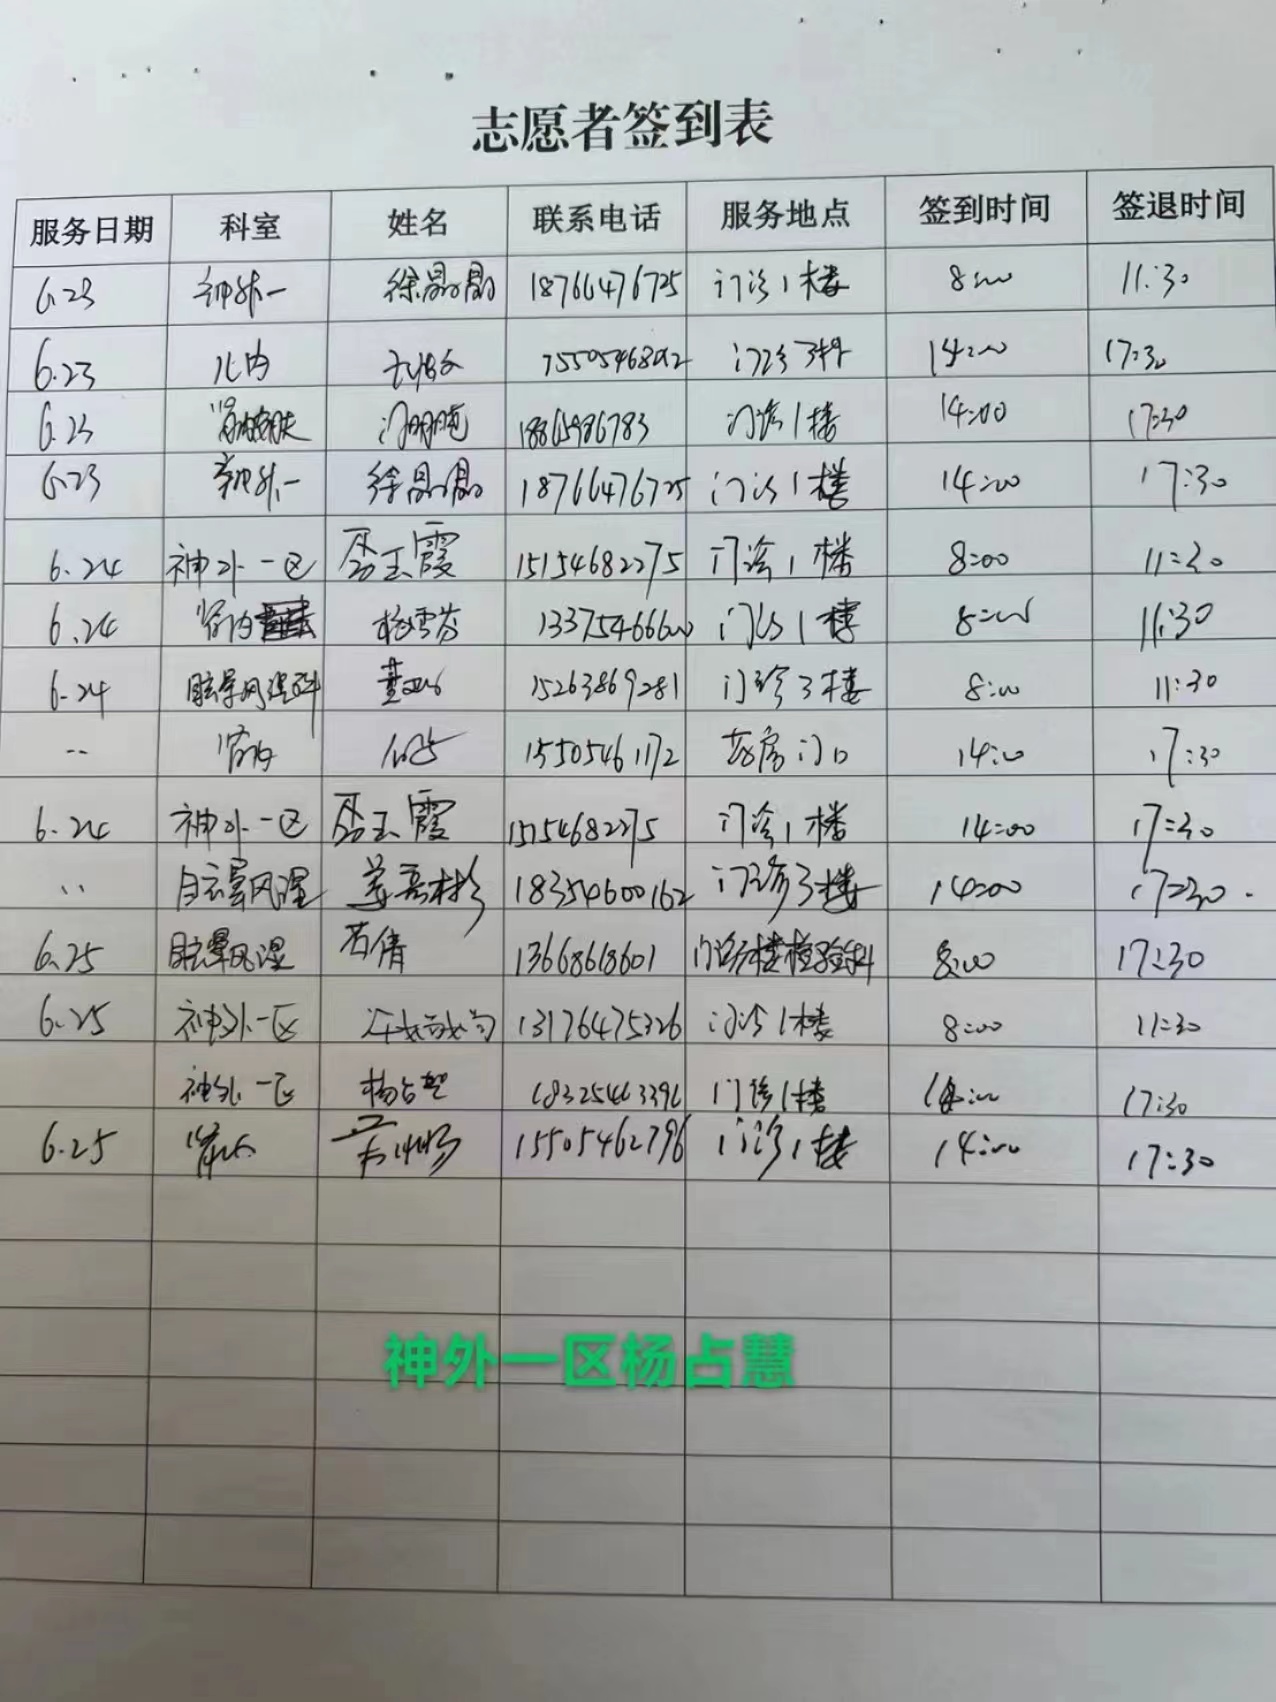 志愿者签到表
服务日期 科室 姓名 联系电话 服务地点 签到时间 签退时间
6.23 神外一 徐晶晶 18766476725 门诊1楼 8:00 11:30
6.23 儿内 门诊3楼 14:00 17:30
6.23 门诊1楼 14:00 17:30
6.23 神外一 徐晶晶 18766476725 门诊1楼 14:00 17:30
6.24 神外一区 玉霞 15154682275 门诊1楼 8:00 11:30
6.24 肾内 杨雪芬 门诊1楼 8:00 11:30
6.24 眩晕风湿科 15263869281 门诊3楼 8:00 11:30
肾内 15505461172 药房门口 14:00 17:30
6.24 神外一区 玉霞 15154682275 门诊1楼 14:00 17:30
眩晕风湿 18354600162 门诊3楼 14:00 17:30
6.25 眩晕风湿 倩 13668668601 门诊楼检验科 8:00 17:30
6.25 神外一区 13176475326 门诊1楼 8:00 11:30
神外一区 杨占慧 门诊1楼 14:00 17:30
6.25 15505462796 门诊1楼 14:00 17:30
神外一区杨占慧